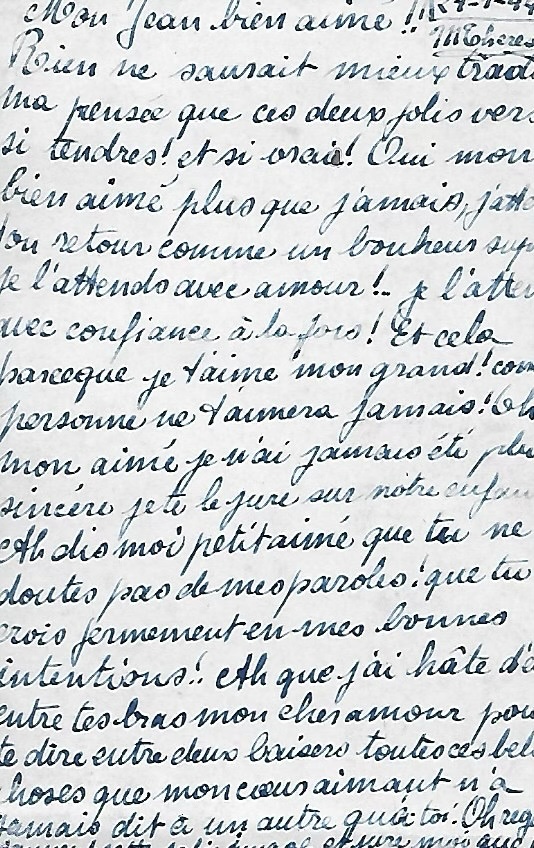 Mon Jean bien aimé !!
Rien ne saurait mieux trad
ma pensée que ces deux jolis vers
si tendres! et si vraie! Oui mon
bien aimé plus que jamais, j'atte
ton retour comme un bonheur sup
Je l'attends avec amour!.. je l'atten
avec confiance à la fois! Et cela
parceque je t'aime mon grand! com
personne ne t'aimera jamais! Oh
mon aimé je n'ai jamais été plu
sincére je te le jure sur notre enfan
Ah dis moi petit aimé que tu ne
doutes pas de mes paroles! que tu
crois fermement en mes bonnes
intentions! Ah que j'ai hâte d'ê
entre tes bras mon cher amour pou
te dire entre deux baisers toutes ces bel
choses que mon cœur aimant n'a
jamais dit à un autre qu'à toi! Oh reg